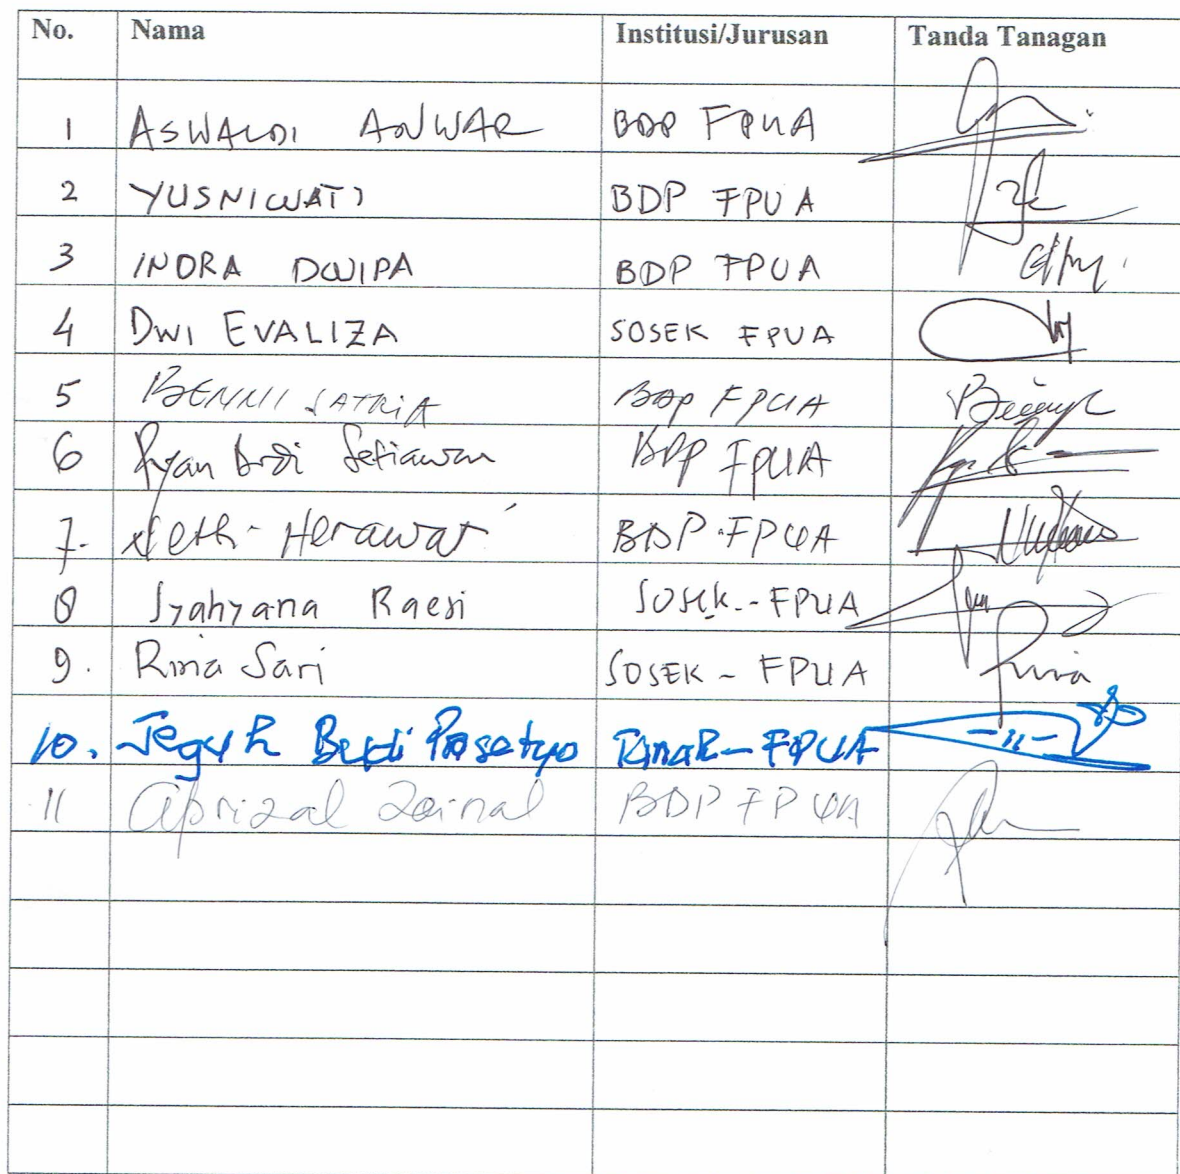 No. Nama Institusi/Jurusan Tanda Tanagan
1 ASWALDI ANWAR BDP FPUA
2 YUSNIWATI BDP FPUA
3 INDRA DWIPA BDP FPUA
4 DWI EVALIZA SOSEK FPUA
5 BENNI SATRIA BDP FPUA
6 Ryan Budi Setiawan BDP FPUA
7. Netti Herawati BDP-FPUA
8 Syahyana Raesi Sosek.-FPUA
9. Rina Sari SOSEK - FPUA Rina
10. Teguh Budi Prasetyo Tanah-FPUA -"-
11 Aprizal Zainal BDP FPUA